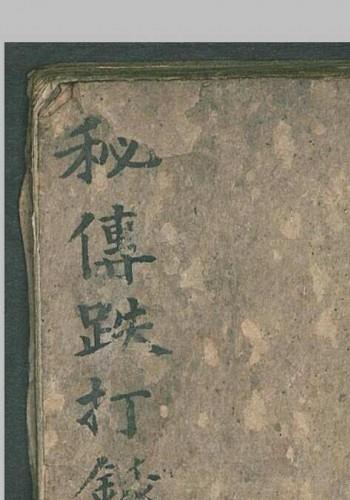 秘傳跌打錄